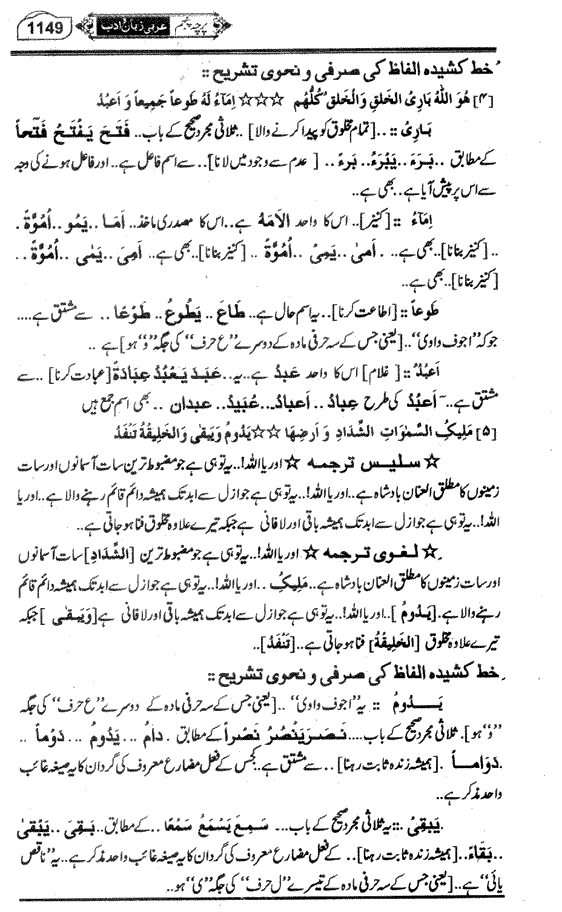 1149 پرچہ پنجم عربی زبان ادب
خط کشیدہ الفاظ کی صرفی و نحوی تشریح ::
[۴] هُوَ اللهُ بَارِئُ الخَلقِ وَالْخَلقُ كُلُّهُم ☆☆☆ اِمَآءٌ لَهُ طَوعاً جَمِيعاً وَ اَعبُدُ
بَارِئُ :: ..[تمام مخلوق کو پیدا کرنے والا] ..ثلاثی مجرد صحیح کے باب.. فَتَحَ يَفْتَحُ فَتْحاً
کے مطابق ..بَرَءَ ..يَبْرَءُ ..بَرءً .. [عدم سے وجود میں لانا] ..سے اسم فاعل ہے ..اور فاعل ہونے کی وجہ
سے اس پر پیش آیا ہے ..بھی ہے ..
اِمَآءُ :: [کنیز].. اس کا واحد الْاَمَهُ ہے ..اس کا مصدری ماخذ.. اَمَا ..يَمُو ..اُمُوَّةً .
.. [کنیز بنانا] ..بھی ہے .. اَمىٰ ..يَمِىْ ..اُمُوَّةً .. [کنیز بنانا] ..بھی ہے .. اَمِىَ ..يَمٰى ..اُمُوَّةً ..
[کنیز بنانا] ..بھی ہے ..
طَوعاً :: [اطاعت کرنا] .. یہ اسم حال ہے .. طَاعَ ..يَطُوعُ ..طَوْعًا .. سے مشتق ہے ....
جو کہ ’’اجوف واوی‘‘ ..[یعنی جس کے سہ حرفی مادہ کے دوسرے ’’ع حرف‘‘ کی جگہ ’’و‘‘ ہو] ہے ..
اَعبُدُ :: [غلام] اس کا واحد عَبدُ ہے ..یہ ..عَبَدَ يَعْبُدُ عِبَادَةً [عبادت کرنا] ..سے
مشتق ہے .. اَعبُدُ کی طرح عِبادُ ..اَعبادُ ...عُبَيدُ ..عبدان .. بھی اسم جمع ہیں
[۵] مَلِيکُ السَّمٰوٰاتِ الشَّدَادِ وَ اَرضِهَا ☆☆ يَدُومُ وَ يَبقٰى وَالخَلِيقَةُ تَنفَدُ
☆ سلیس ترجمہ ☆ اور یا اللہ!.. یہ تو ہی ہے جو مضبوط ترین سات آسمانوں اور سات
زمینوں کا مطلق العنان بادشاہ ہے ..اور یا اللہ!.. یہ تو ہی ہے جو ازل سے ابد تک ہمیشہ دائم قائم رہنے والا ہے ..اور یا
اللہ!.. یہ تو ہی ہے جو ازل سے ابد تک ہمیشہ باقی اور لافانی ہے جبکہ تیرے علاوہ مخلوق فنا ہو جاتی ہے ..
☆ لغوی ترجمہ ☆ اور یا اللہ!.. یہ تو ہی ہے جو مضبوط ترین [الشَّدَادِ] سات آسمانوں
اور سات زمینوں کا مطلق العنان بادشاہ ہے ..مَلِيکُ ..اور یا اللہ!.. یہ تو ہی ہے جو ازل سے ابد تک ہمیشہ دائم قائم
رہنے والا ہے. [يَدُومُ] ..اور یا اللہ!.. یہ تو ہی ہے جو ازل سے ابد تک ہمیشہ باقی اور لافانی ہے [وَيَبقٰى] جبکہ
تیرے علاوہ مخلوق [الخَلِيقَةُ] فنا ہو جاتی ہے ..[تَنفَدُ] ..
خط کشیدہ الفاظ کی صرفی و نحوی تشریح ::
يَدُومُ :: یہ ’’اجوف واوی‘‘ ..[یعنی جس کے سہ حرفی مادہ کے دوسرے ’’ع حرف‘‘ کی جگہ
’’و‘‘ ہو]. ثلاثی مجرد صحیح کے باب.... نَصَرَ يَنْصُرُ نَصْراً کے مطابق .دامُ ..يَدُومُ ..دَوْماً ..
دَوَاماً .[ہمیشہ زندہ ثابت رہنا] ....سے مشتق ہے ..جس کے فعل مضارع معروف کی گردان کا یہ صیغہ غائب
واحد مذکر ہے ..
يَبْقىٰ :: یہ ثلاثی مجرد صحیح کے باب... سَمِعَ يَسْمَعُ سَمْعًا .. کے مطابق ..بَقِىَ ..يَبْقىٰ
..بَقَاءً ..[ہمیشہ زندہ ثابت رہنا] .. کے فعل مضارع معروف کی گردان کا یہ صیغہ غائب واحد مذکر ہے ..یہ ’’ناقص
یائی‘‘ ہے ..[یعنی جس کے سہ حرفی مادہ کے تیسرے ’’ل حرف‘‘ کی جگہ ’’ی‘‘ ہو ..